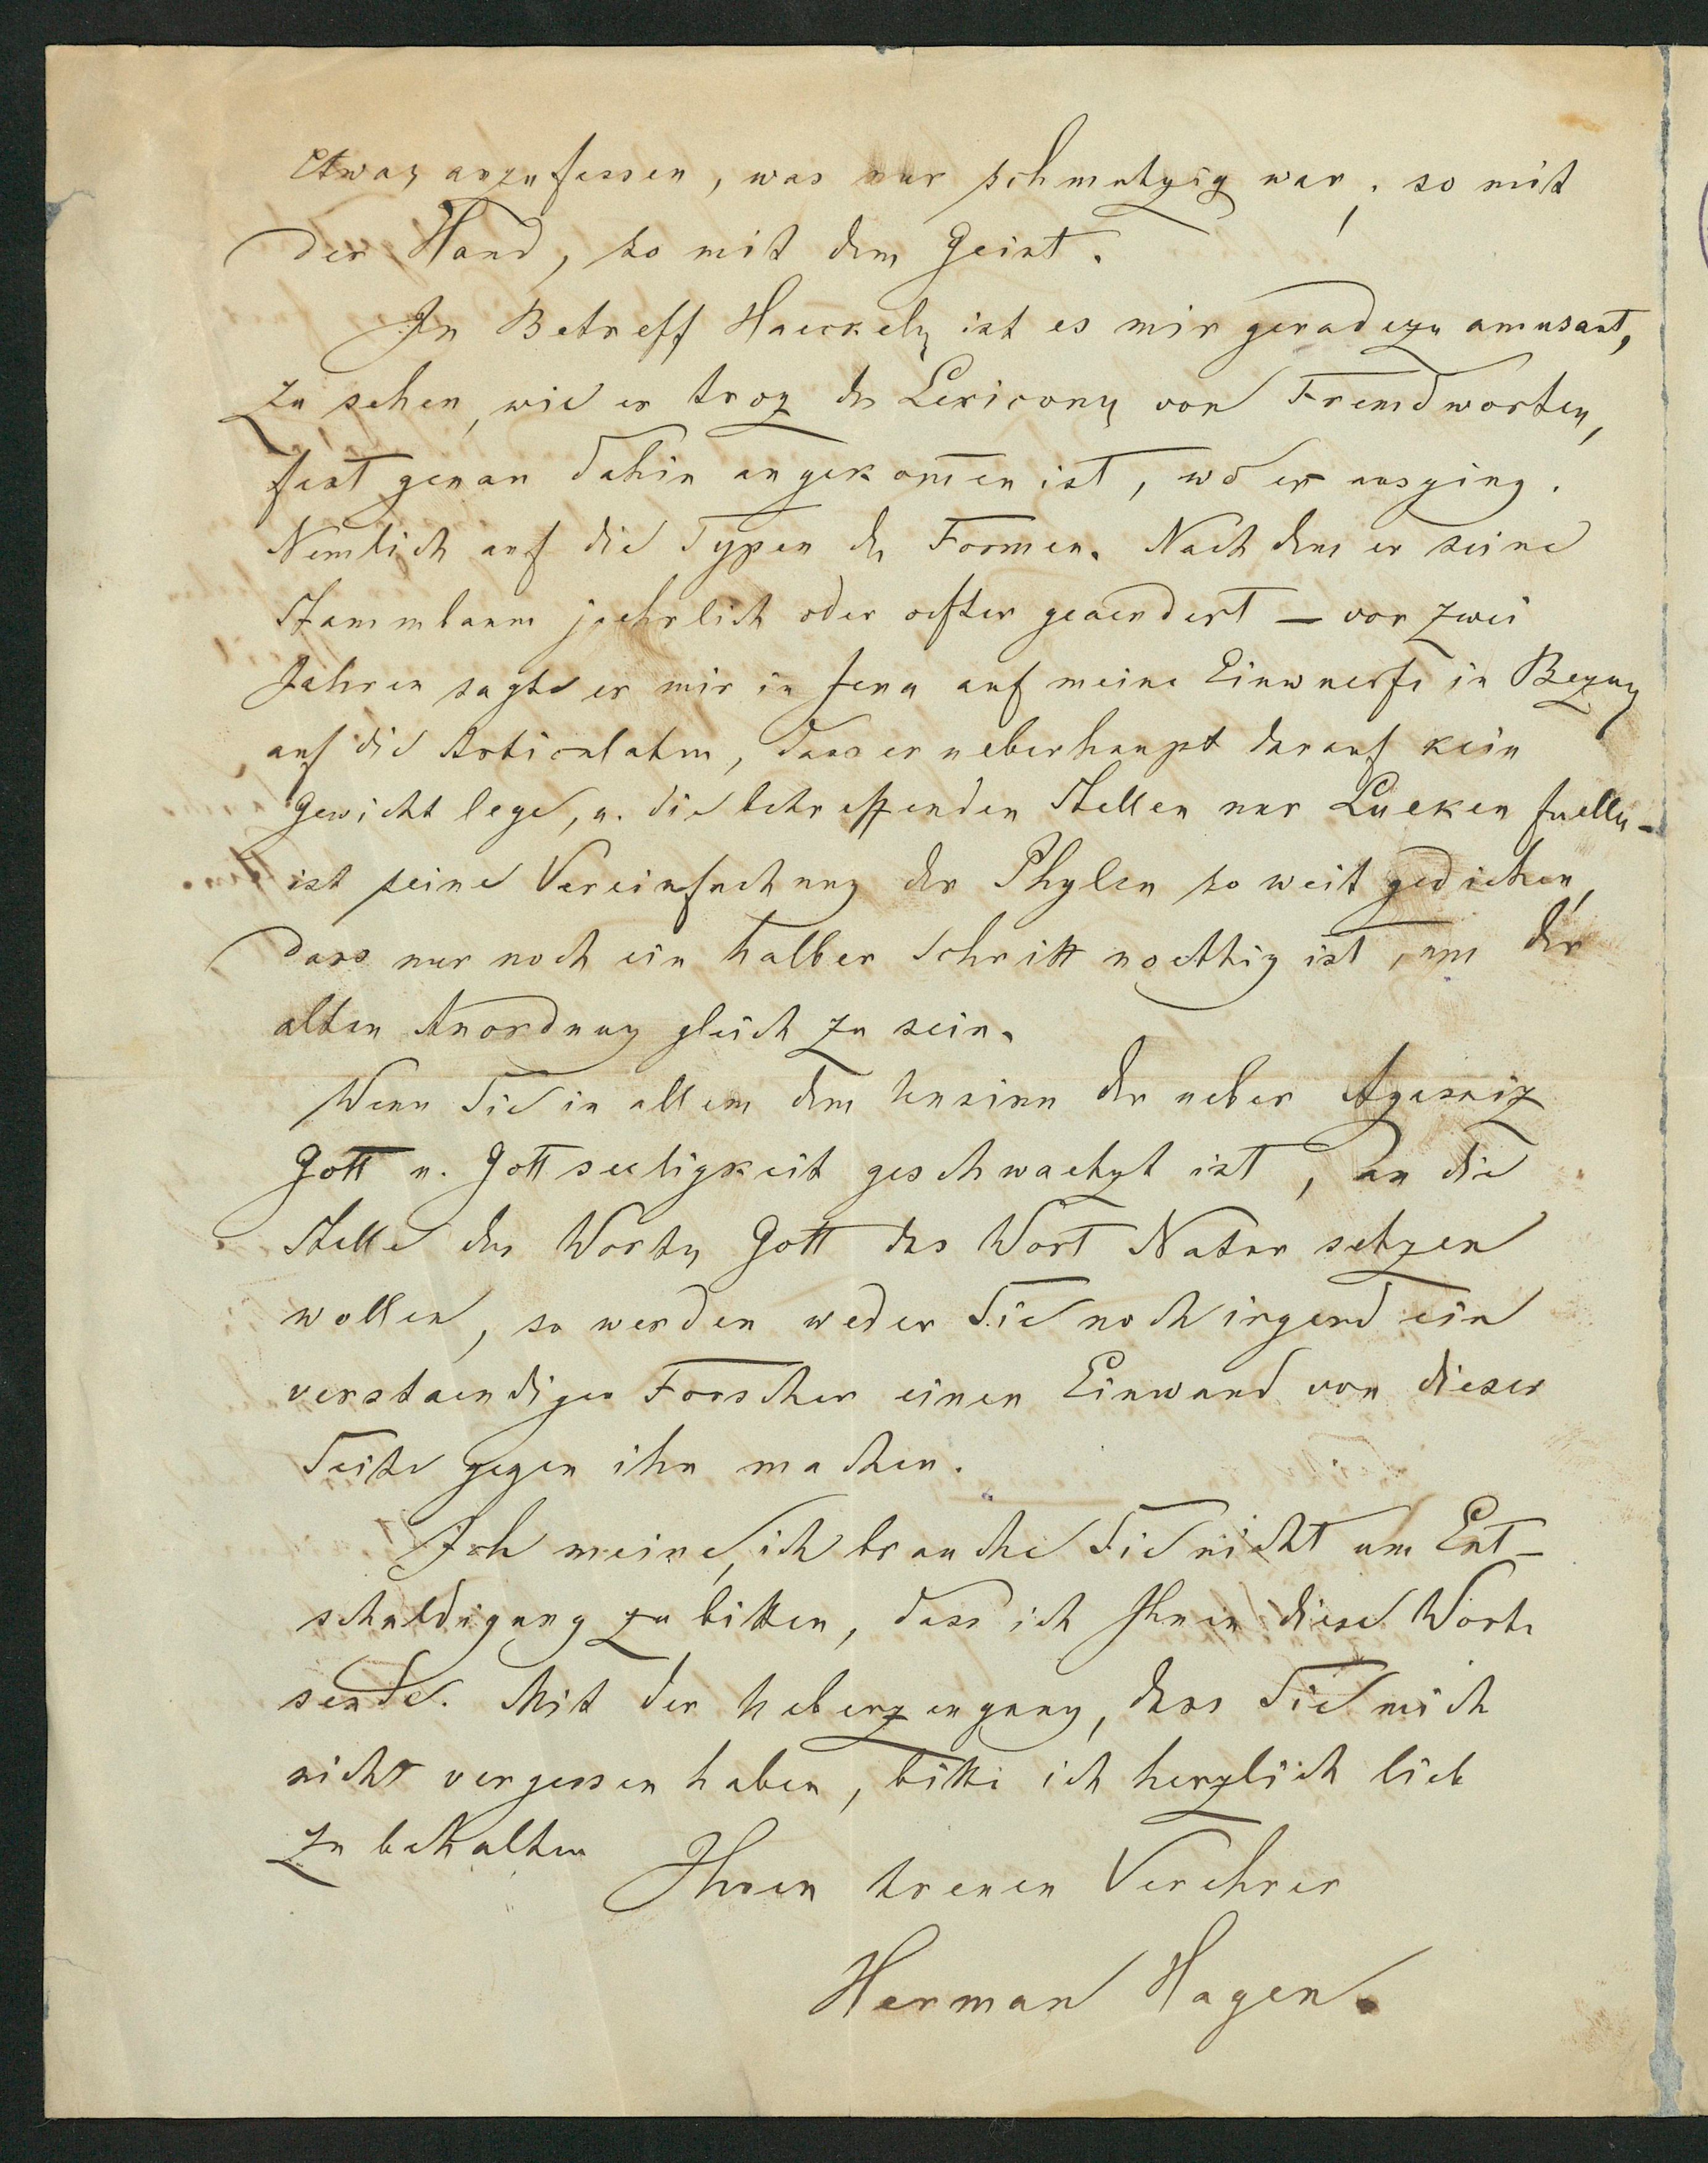 Etwas anzufassen, was nur schmutzig war, so mit
der Hand, so mit dem Geist.
In Betreff Haeckels ist es mir geradezu amusant,
zu sehen, wie er troz des Lexicons von Fremdworten,
fast genau dahin angekom̄en ist, wo er ausging.
Nemlich auf die Typen der Formen. Nach dem er seine
Stammbaum jaehrlich oder oefter geaendert – vor zwei
Jahren sagte er mir in Jena auf meine Einwuerfe in Bezug
auf die Articulaten, dass er ueberhaupt darauf kein
Gewicht lege, u. die betreffenden Stellen nur Lueken fuellen –
ist seine Vereinfachung der Phylen so weit gediehen,
dass nur noch ein halber Schritt noethig ist, um der
alten Anordnung gleich zu sein.
Wenn Sie in allem dem Unsinn der ueber Agassiz
Gott u. Gottseeligkeit geschwaetzt ist, an die
Stelle des Wortes Gott das Wort Natur setzen
wollen, so werden weder Sie noch irgend ein
verstaendiger Forscher einen Einwand von dieser
Seite gegen ihn machen.
Ich meine, ich brauche Sie nicht um Ent-
schuldigung zu bitten, dass ich Ihnen diese Worte
sende. Mit der Ueberzeugung, dass Sie mich
nicht vergessen haben, bitte ich herzlich lieb
zu behalten
Ihren treuen Verehrer
Herman Hagen.